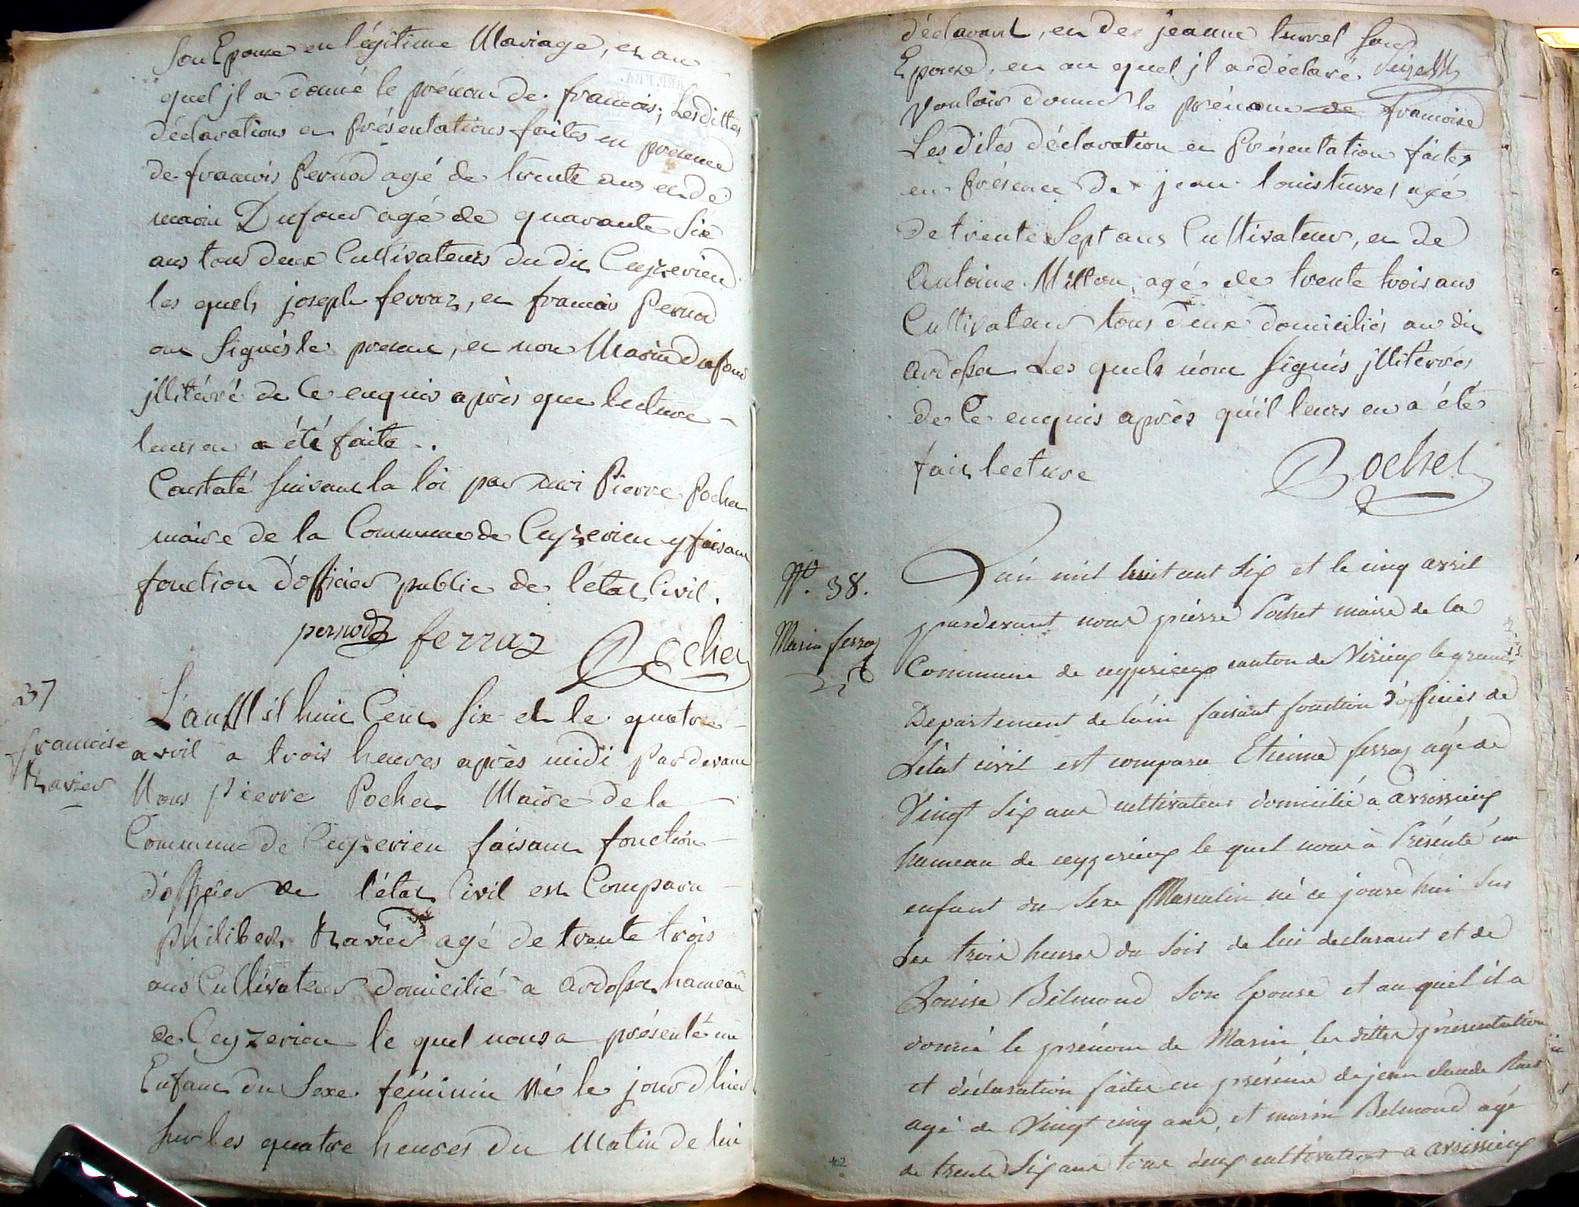 Son Epouse en légitime Mariage, et au
quel jl a donné le prénom de francois, Les dittes
déclarations et Présentations faites en presence
de francois Pernod agé de trente ans et de
marin Dufour agé de quarante Six
ans tous deux Cultivateurs du dit Ceyzerieu
les quels joseph ferraz, et francois Pernod
ont Signés le present, et non Marin dufour
jllitérré de Ce enquis après que lecture
leurs en a été faite.
Constaté Suivant la loi par moi Pierre Pochet
maire de la Commune de Ceyzerieu y faisant
fonction d'officier public de l'état Civil.
pernod ferraz Pochet
37
francoise
travier
L'an Mil huit Cent Six et le quatre
avril a trois heures après midi Pardevant
Nous Pierre Pochet Maire de la
Commune de Ceyzerieu faisant fonction
d'officier de l'état Civil est Comparu
Philibert travier agé de trente trois
ans Cultivateur Domicilié a ardossa hameau
de Ceyzerieu le quel nous a présenté un
Enfant du Sexe féminin Né le jourd'hier
Sur les quatre heures du Matin de lui
déclarant, et de jeanne turrel Son
Epouse, et au quel jl a déclaré
Vouloir donner le prénom de francoise
Les dites déclaration et Présentation faites
en Présence de jean louis turrel agé
de trente Sept ans Cultivateur, et de
Antoine Millon, agé de trente trois ans
Cultivateur tous deux domiciliés au dit
ardossa Les quels n'ont Signés jllitérrés
de Ce enquis après qu'il leurs en a été
fait lecture Pochet
N° 38.
Marin ferraz
L'an mil huit cent Six et le cinq avril
pardevant nous pierre Pochet maire de la
Commune de ceyzerieux canton de Virieux le grand
Departement de l'ain faisant fonction d'officier de
L'état civil est comparu Etienne ferraz agé de
Vingt Six ans cultivateur domicilié a avrissieux
hameau de ceyzerieux le quel nous à Présenté un
enfant du Sexe Masculin né ce jourd'hui Sur
Les trois heures du Soir de lui declarant et de
Louise Belmond Son Epouse et au quel il a
donné le prénom de Marin les dittes présentation
et déclaration faites en présence de jean claude
agé de Vingt cinq ans, et marin Belmond agé
de trente Six ans tous deux cultivateurs a avrissieux